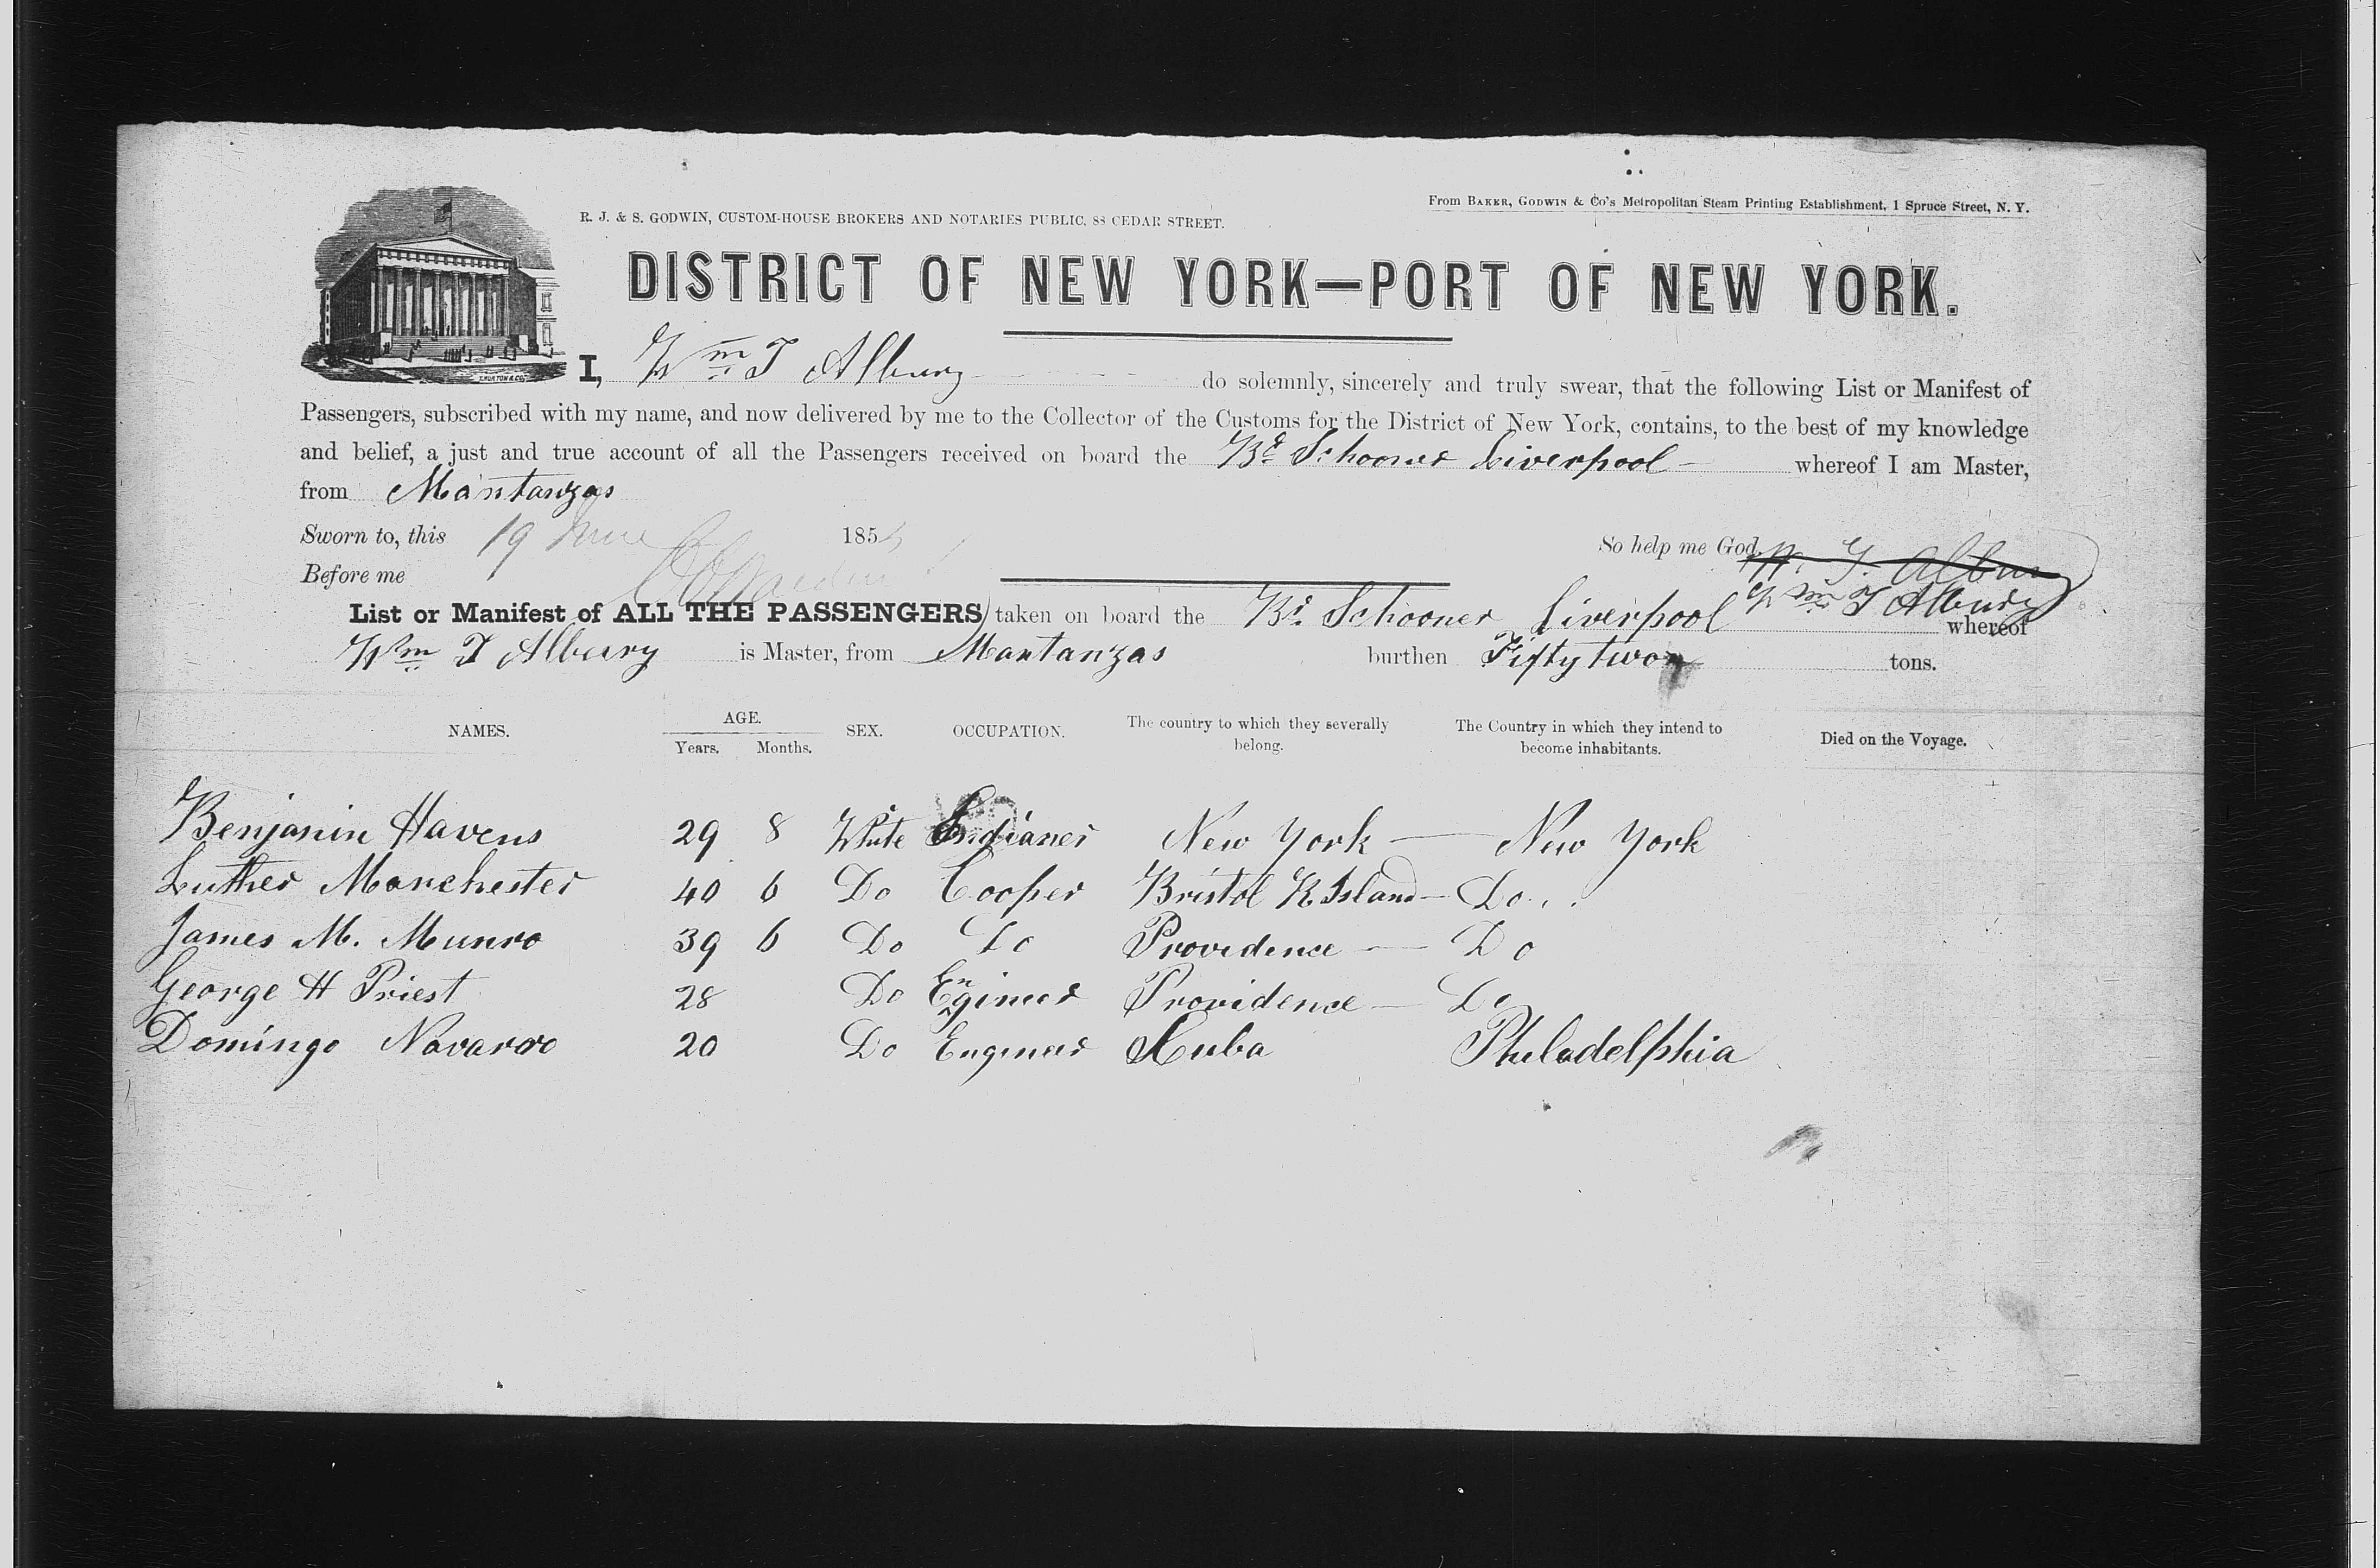 R. J. & S. GODWIN, CUSTOM-HOUSE BROKERS AND NOTARIES PUBLIC, 88 CEDAR STREET.
From BAKER, GODWIN & Co's Metropolitan Steam Printing Establishment, 1 Spruce Street, N. Y.
DISTRICT OF NEW YORK—PORT OF NEW YORK.
I, Wm T Albury do solemnly, sincerely and truly swear, that the following List or Manifest of
Passengers, subscribed with my name, and now delivered by me to the Collector of the Customs for the District of New York, contains, to the best of my knowledge
and belief, a just and true account of all the Passengers received on board the Br Schooner Liverpool whereof I am Master,
from Mantanzas
Sworn to, this 19 June 185 So help me God. W. T. Albury
Before me
Wm T Albury
List or Manifest of ALL THE PASSENGERS taken on board the Br. Schooner Liverpool whereof
Wm T Albury is Master, from Mantanzas burthen Fifty two tons.
NAMES. AGE. SEX. OCCUPATION. The country to which they severally belong. The Country in which they intend to become inhabitants. Died on the Voyage.
Years. Months.
Benjanin Havens 29 8 White New York — New York
Luther Manchester 40 6 Do Cooper Bristol R Island — Do
James M. Munro 39 6 Do Do Providence — Do
George H Priest 28 Do Engineer Providence — Do
Domingo Navarro 20 Do Engineer Cuba Philadelphia